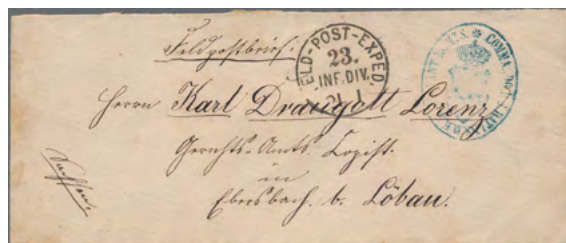 Feldpostbrief.
FELD-POST-EXPED.
23.
INF. DIV.
21 1
Herrn Karl Draugott Lorenz
Gerichts-Amts-Copist.
in
Ebersbach. b. Löbau.
Sachsen.